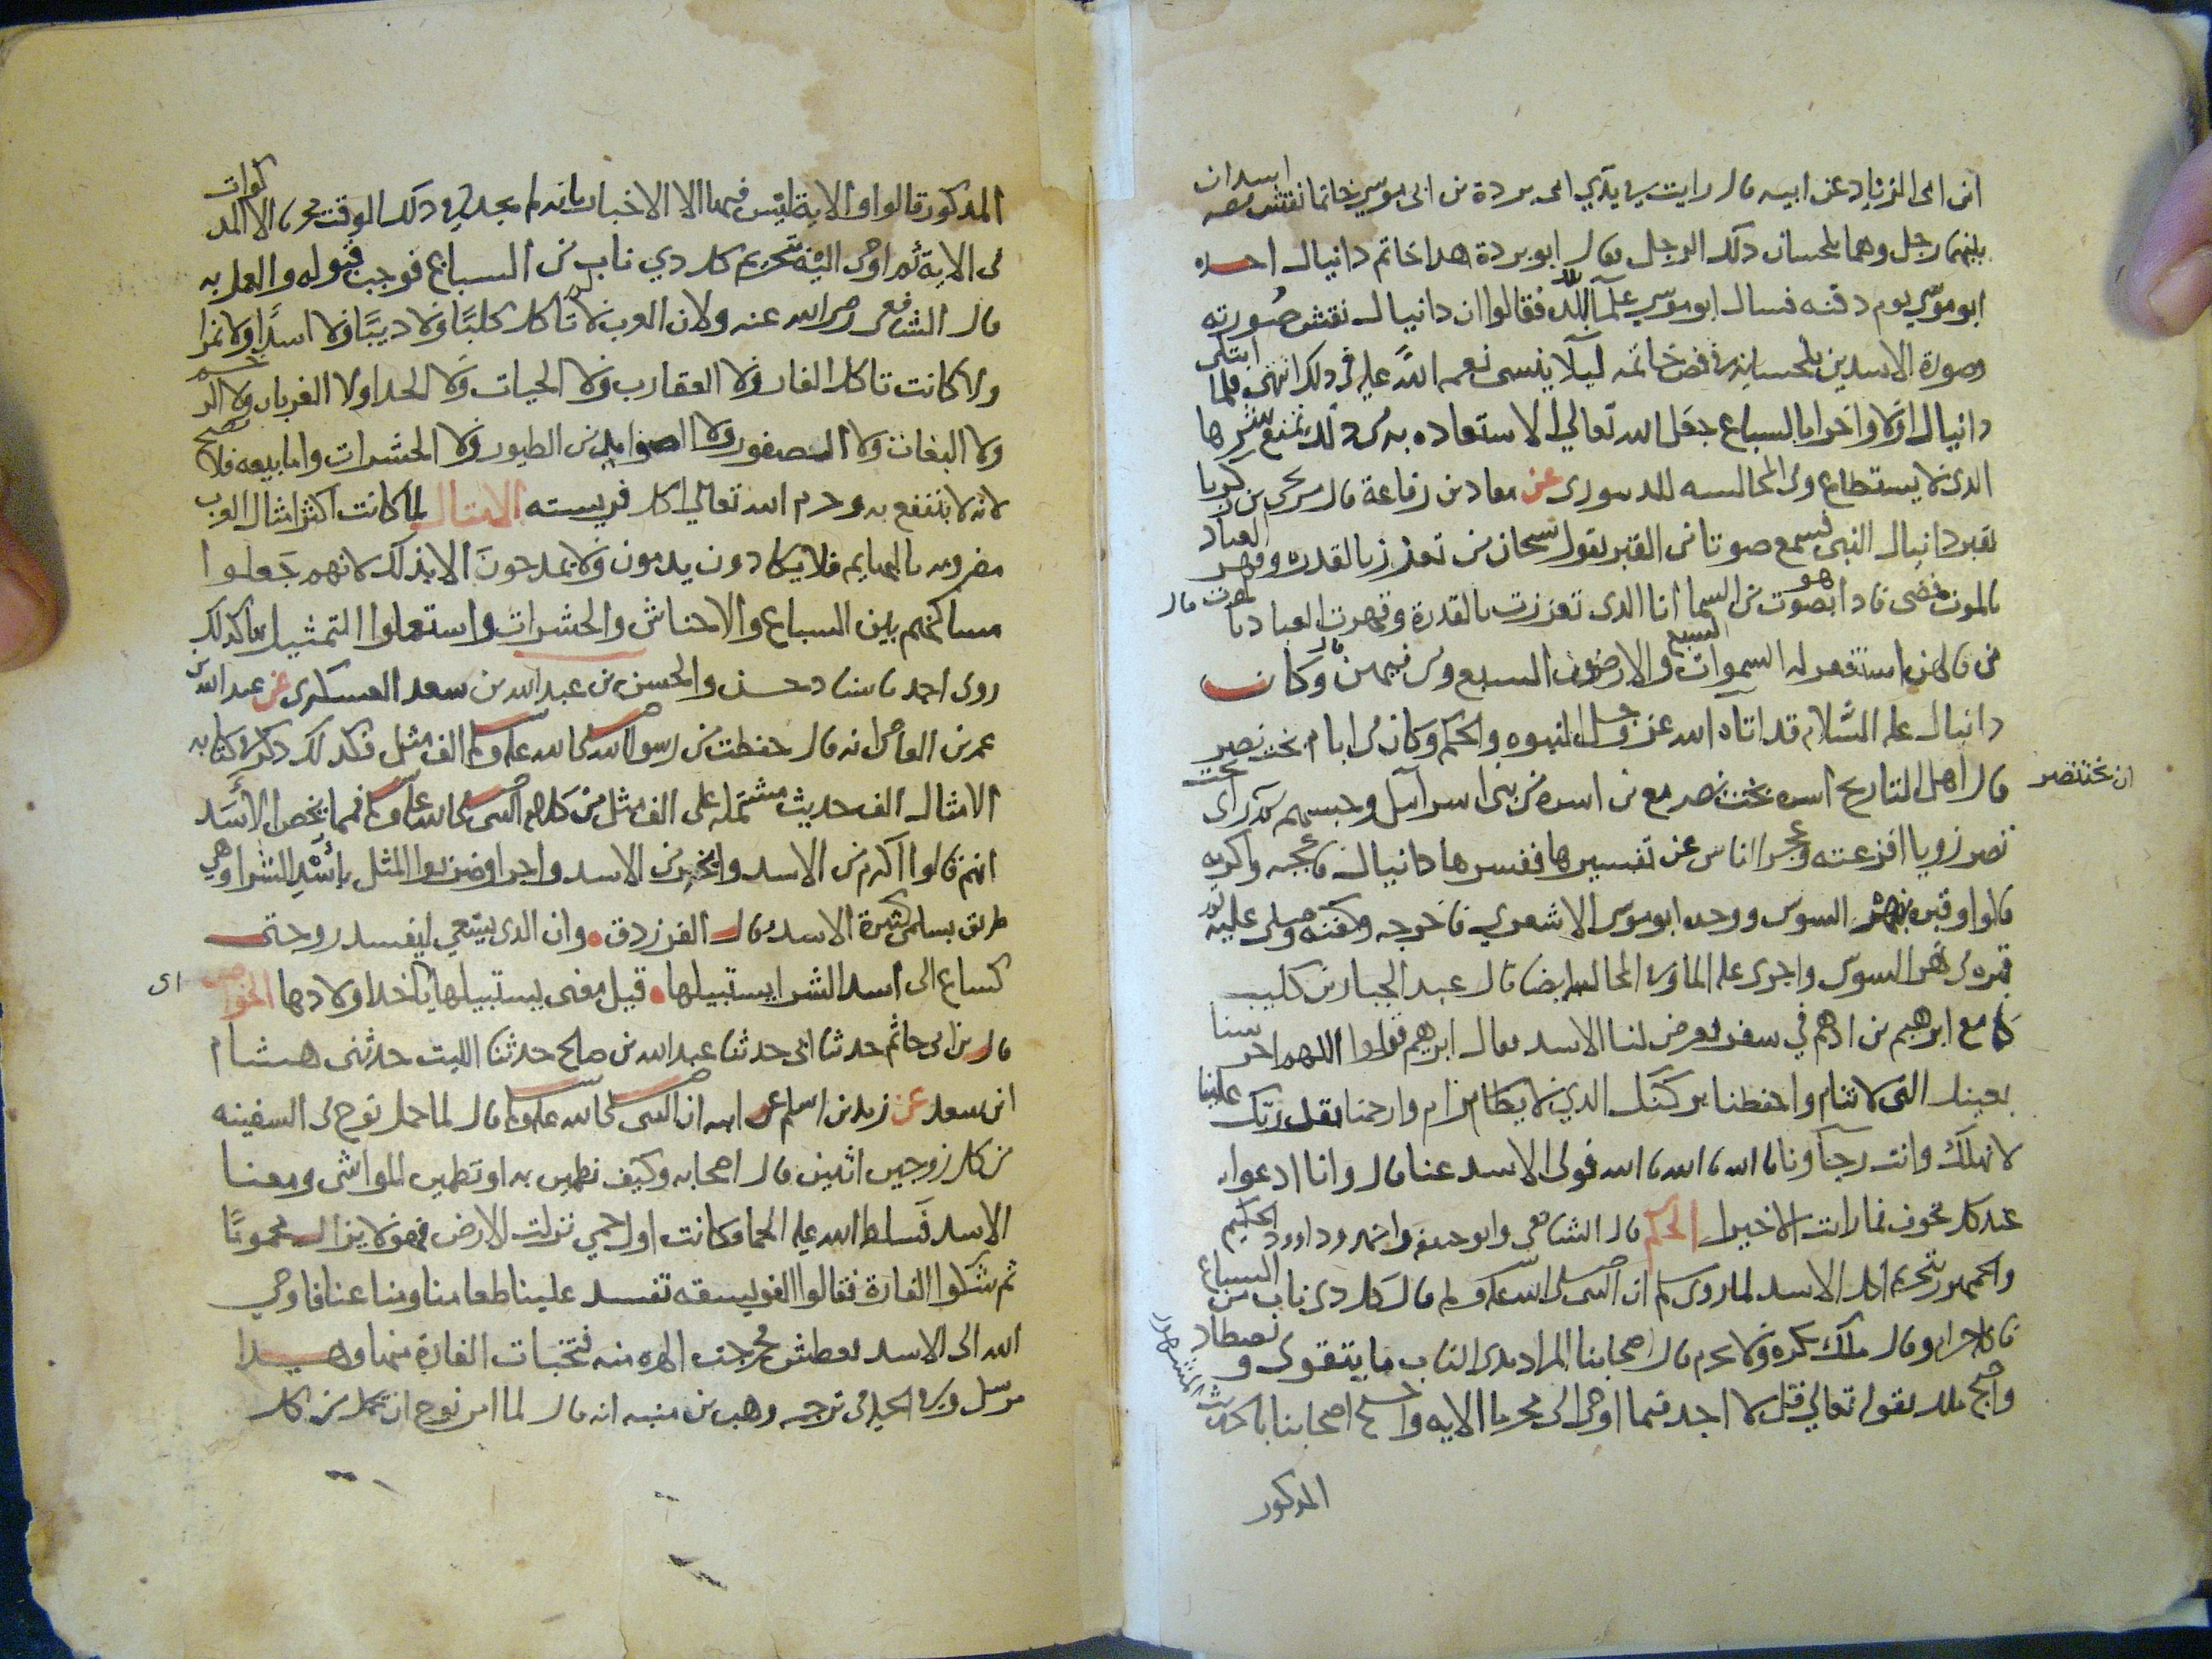 ابن ابى الزناد عن ابيه قال رايت في يدي ابى بردة بن ابى موسى خاتما نقش فصه اسدان
بينهما رجل وهما يلحسان ذلك الرجل فقال ابو بردة هذا خاتم دانيال اخذه
ابو موسى يوم دفنه فسال ابو موسى علما البلد فقالوا ان دانيال نقش صورته
وصورة الاسدين يلحسانه في فص خاتمه ليلا ينسى نعمة الله عليه في ذلك انتهى فلما ابتلى
دانيال اولا واخرا بالسباع جعل الله تعالى الاستعاذه به في ذلك تمنع شرها
الذى لا يستطاع وفى المجالسه للدينورى عن معاذ بن رفاعة قال مر يحيى بن زكريا
بقبر دانيال النبى فسمع صوتا من القبر يقول سبحان من تعزز بالقدره وقهر العباد
بالموت فمضى فاذا هو بصوت من السما انا الذى تعززت بالقدرة وقهرت العباد بالموت قال
من قالهن استغفر له السموات السبع والارضون السبع ومن فيهن قال وكان
دانيال عليه السلام قد اتاه الله عز وجل النبوه والحكم وكان في ايام بخت نصر
قال اهل التاريخ اسره بخت نصر مع من اسره من بنى اسرآيل وحبسهم ثم راى بخت
ان بختنصر
نصر رويا افزعته وعجز الناس عن تفسيرها ففسرها دانيال فاعجبه واكرمه
قالوا وقبره بنهر السوس ووجده ابو موسى الاشعرى فاخرجه وكفنه وصلى عليه ثم
قبره في نهر السوس واجرى عليه الما وفى المجالسه ايضا قال عبد الجبار بن كليب
كنا مع ابرهيم بن ادهم في سفر فعرض لنا الاسد فقال ابرهيم قولوا اللهم احرسنا
بعينك التى لا تنام واحفظنا بركنك الذي لا يرام وارحمنا بقدرتك علينا
لا نهلك وانت رجآونا يا الله يا الله يا الله فولى الاسد عنا قال وانا ادعوا به
عند كل مخوف فما رايت الا خيرا الحكم قال الشافعى وابو حنيفه واحمد وداوود
والجمهور بتحريم اكل الاسد لما روى مسلم ان النبى صلى الله عليه وسلم قال كل ذى ناب من السباع
فاكله حرام وقال ملك يكره ولا يحرم قال اصحابنا المراد بذى الناب ما يتقوى و يصطاد
واحتج ملك بقوله تعالى قل لا اجد فيما اوحى الى محرما الايه واحتج اصحابنا بالحديث المشهور
المذكور
المذكور قالوا والاية ليس فيها الا الاخبار بانه لم يجد في ذلك الوقت محرما الا المذكورات
فى الاية ثم اوحى اليه تحريم كل ذي ناب من السباع فوجب قبوله والعمل به
قال الشافعى رضى الله عنه ولان العرب لم تاكل كلبا ولا ذيبا ولا اسدا ولا نمرا
ولا كانت تاكل الفار ولا العقارب ولا الحيات ولا الحدا ولا الغربان ولا الرخم
ولا البغاث ولا الصقور ولا الصوايد من الطيور ولا الحشرات واما بيعه فلا يصح
لانه لا ينتفع به وحرم الله تعالى اكل فريسته الامثال لما كانت اكثر امثال العرب
مضروبه بالبهايم فلا يكادون يذمون ولا يمدحون الا بذلك لانهم جعلوا
مساكنهم بين السباع والاحناش والحشرات واستعملوا التمثيل بها كذلك
روى احمد باسناد حسن والحسن بن عبد الله بن سعد العسكرى عن عبد الله بن
عمر بن العاص انه قال حفظت من رسول الله صلى الله عليه وسلم الف مثل فكذلك ذكر في كتابه
الامثال الف حديث مشتمله على الف مثل من كلام النبى صلى الله عليه وسلم فمما يخص الاسد
انهم قالوا اكرم من الاسد وابخر من الاسد واجرا وضربوا المثل باسد الشرا وهي
طريق بسلمى كثيرة الاسد قال الفرزدق وان الذى يبتغي ليفسد زوجتى
كساع الى اسد الشرا يستبيلها قيل معنى يستبيلها ياخذ اولادها الخواص
اى
قال بن ابى حاتم حدثنا ابى حدثنا عبد الله بن صالح حدثنا الليث حدثنى هشام
ابن سعد عن زيد بن اسلم عن ابيه ان النبى صلى الله عليه وسلم قال لما حمل نوح فى السفينه
من كل زوجين اثنين قال اصحابه وكيف نطمين به او تطمين المواشى ومعنا
الاسد فسلط الله عليه الحما وكانت اول حمي نزلت الارض فهو لا يزال محموما
ثم شكوا الفارة فقالوا الفويسقه تفسد علينا طعامنا ومتاعنا فاوحي
الله الى الاسد فعطش فخرجت الهره منه فتخبات الفارة منها وهذا
مرسل وفى الحليه فى ترجمه وهب بن منبه انه قال لما امر نوح ان يحمل من كل